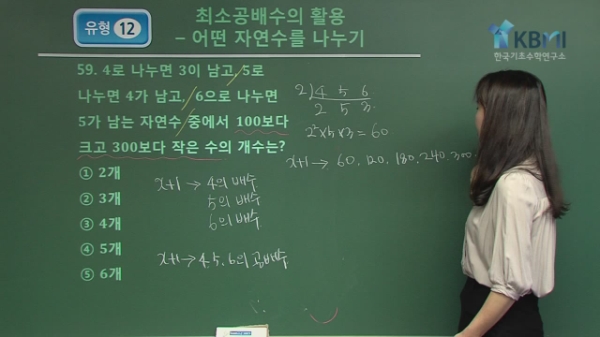 유형 12
최소공배수의 활용
– 어떤 자연수를 나누기
KBMI
한국기초수학연구소
59. 4로 나누면 3이 남고, 5로
나누면 4가 남고, 6으로 나누면
5가 남는 자연수 중에서 100보다
크고 300보다 작은 수의 개수는?
① 2개
② 3개
③ 4개
④ 5개
⑤ 6개
2) 4 5 6
2 5 3
2²×5×3=60
x+1→ 60, 120, 180, 240, 300
x+1→ 4의 배수
5의 배수
6의 배수
x+1→ 4, 5, 6의 공배수